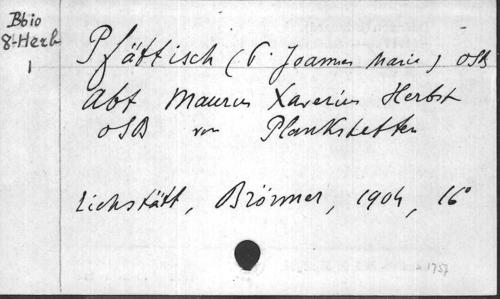 Bbio
8-Herb
1
Pfättisch (P. Joannes Marie) OSB
Abt Maurus Xaverius Herbst
OSB von Plankstetten
Eichstätt, Brönner, 1904, 16°
1757